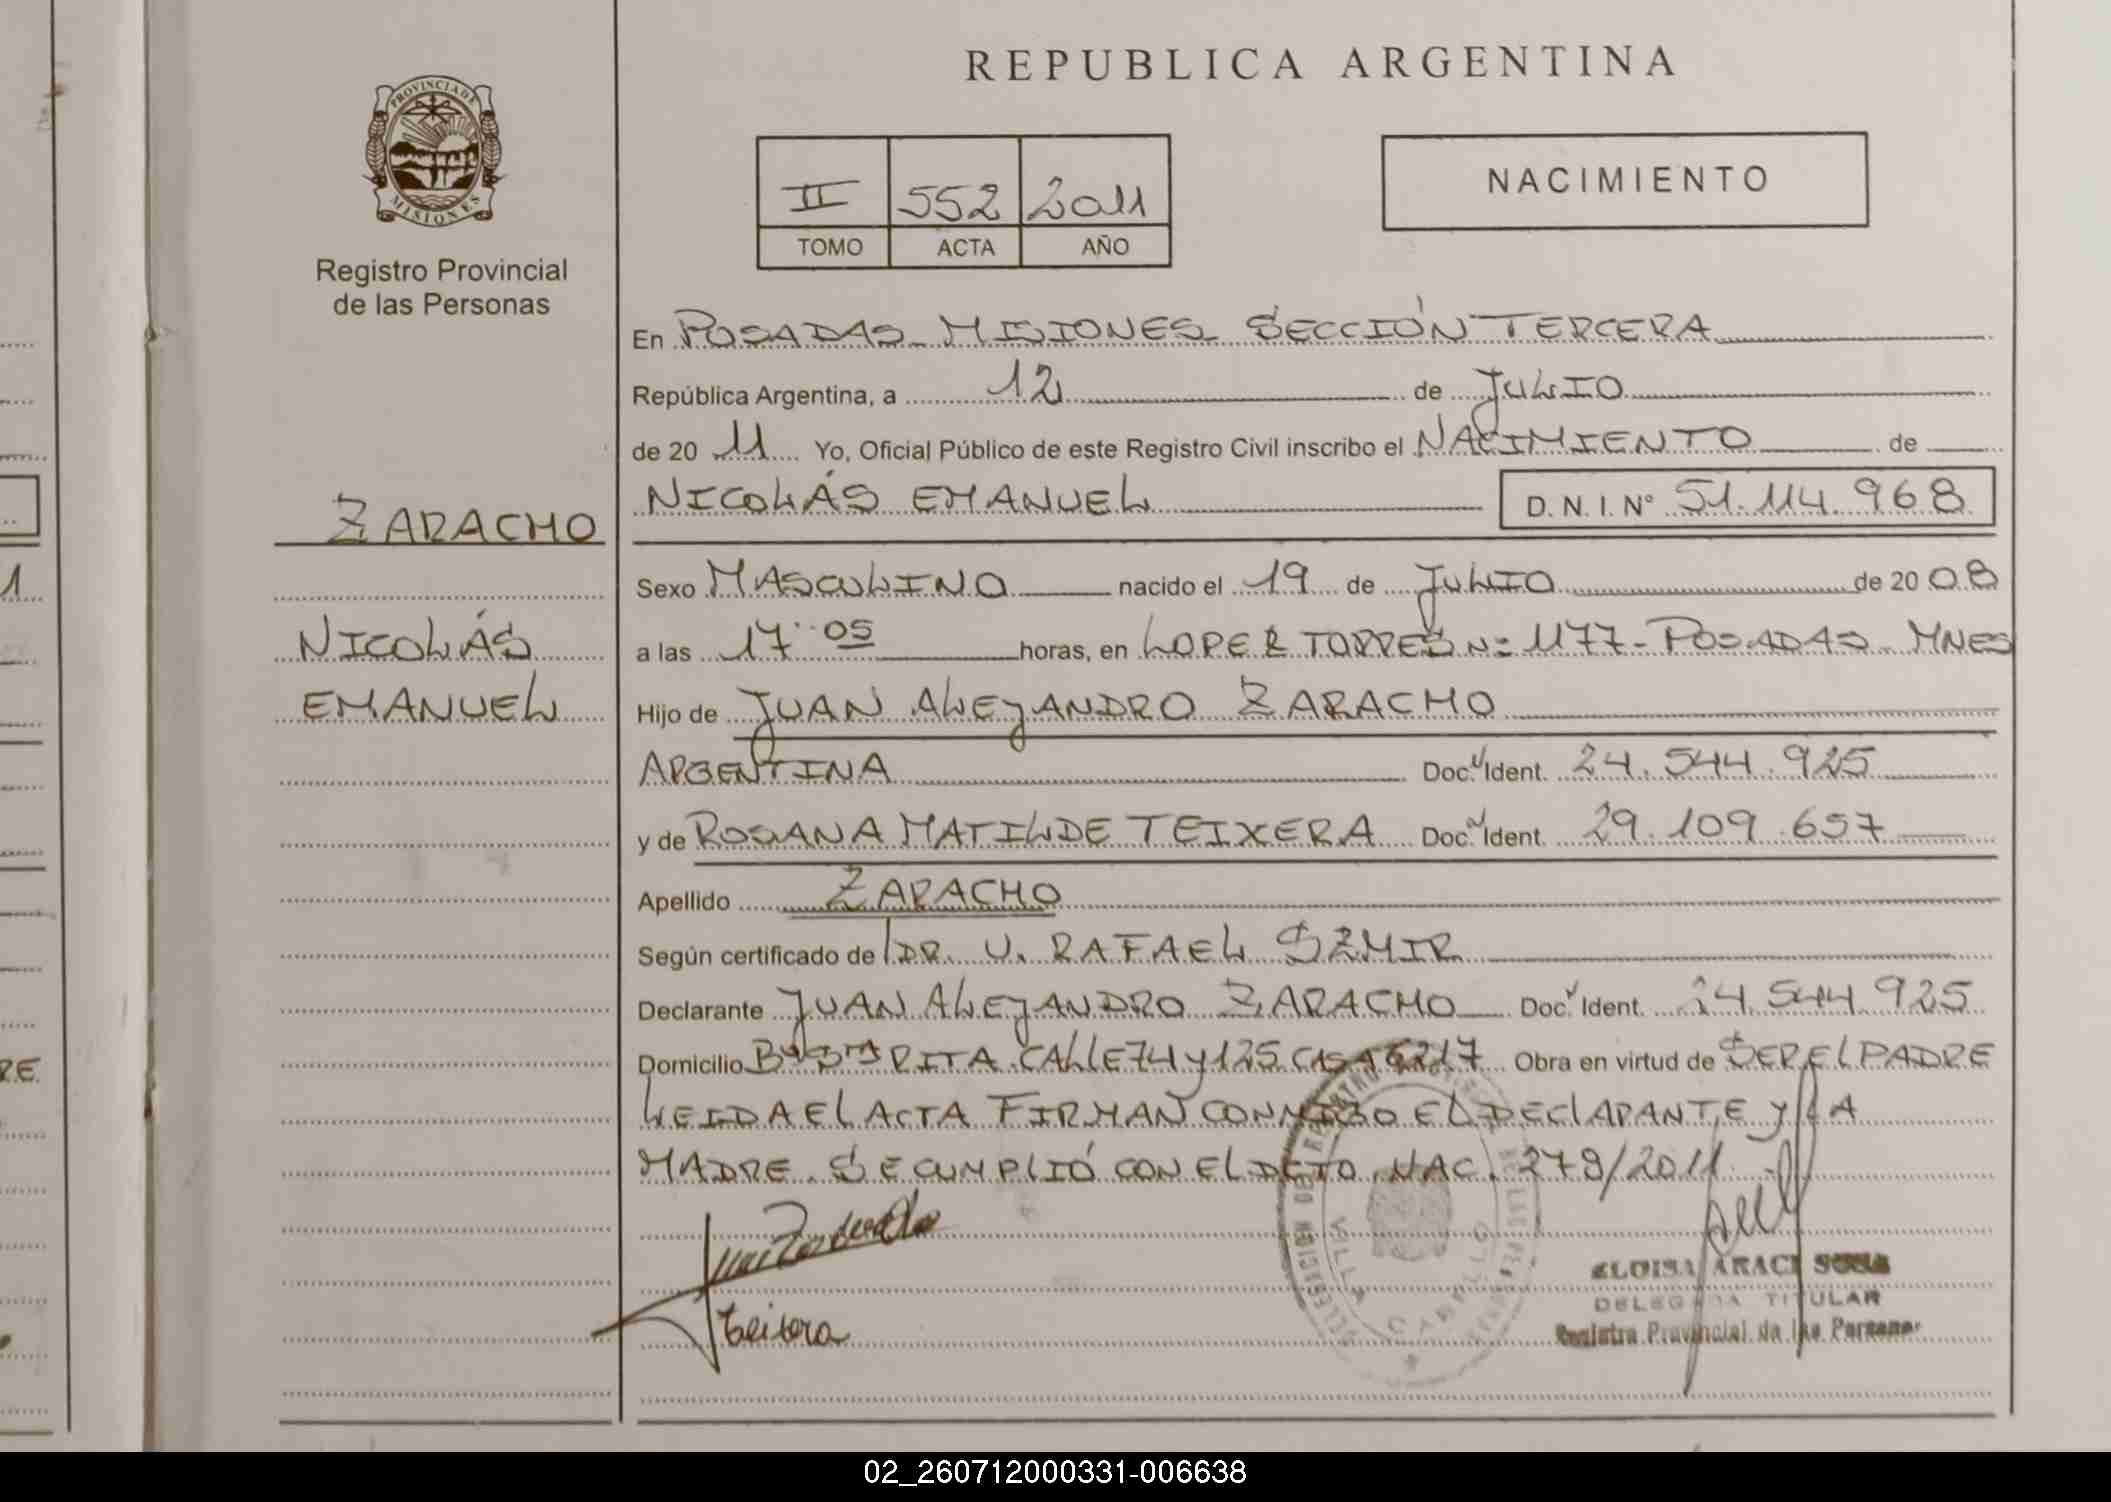 REPUBLICA ARGENTINA
PROVINCIA DE
MISIONES
Registro Provincial
de las Personas
II 552 2011
TOMO ACTA AÑO
NACIMIENTO
En POSADAS - MISIONES SECCIÓN TERCERA
República Argentina, a 12 de JULIO
de 20 11 Yo, Oficial Público de este Registro Civil inscribo el NACIMIENTO de
NICOLÁS EMANUEL D. N. I. Nº 51.114.968
ZARACHO
NICOLÁS
EMANUEL
Sexo MASCULINO nacido el 19 de JULIO de 20 08
a las 17:05 horas, en LOPEZ TORRES Nº 1177 - POSADAS - MNES
Hijo de JUAN ALEJANDRO ZARACHO
ARGENTINA Doc. Ident. 24.544.925
y de ROSANA MATILDE TEIXERA Doc. Ident. 29.109.657
Apellido ZARACHO
Según certificado de DR. U. RAFAEL SZMIR
Declarante JUAN ALEJANDRO ZARACHO Doc. Ident. 24.544.925
Domicilio Bº STA RITA CALLE 74 y 125 CASA 6217 Obra en virtud de SER EL PADRE
LEIDA EL ACTA FIRMAN CONMIGO EL DECLARANTE Y LA
MADRE. SE CUMPLIÓ CON EL DCTO. NAC. 278/2011
Teixera
VILLA CABELLO
ELOISA ARACI SOSA
DELEGADA TITULAR
Registro Provincial de las Personas
1
RE
02_260712000331-006638